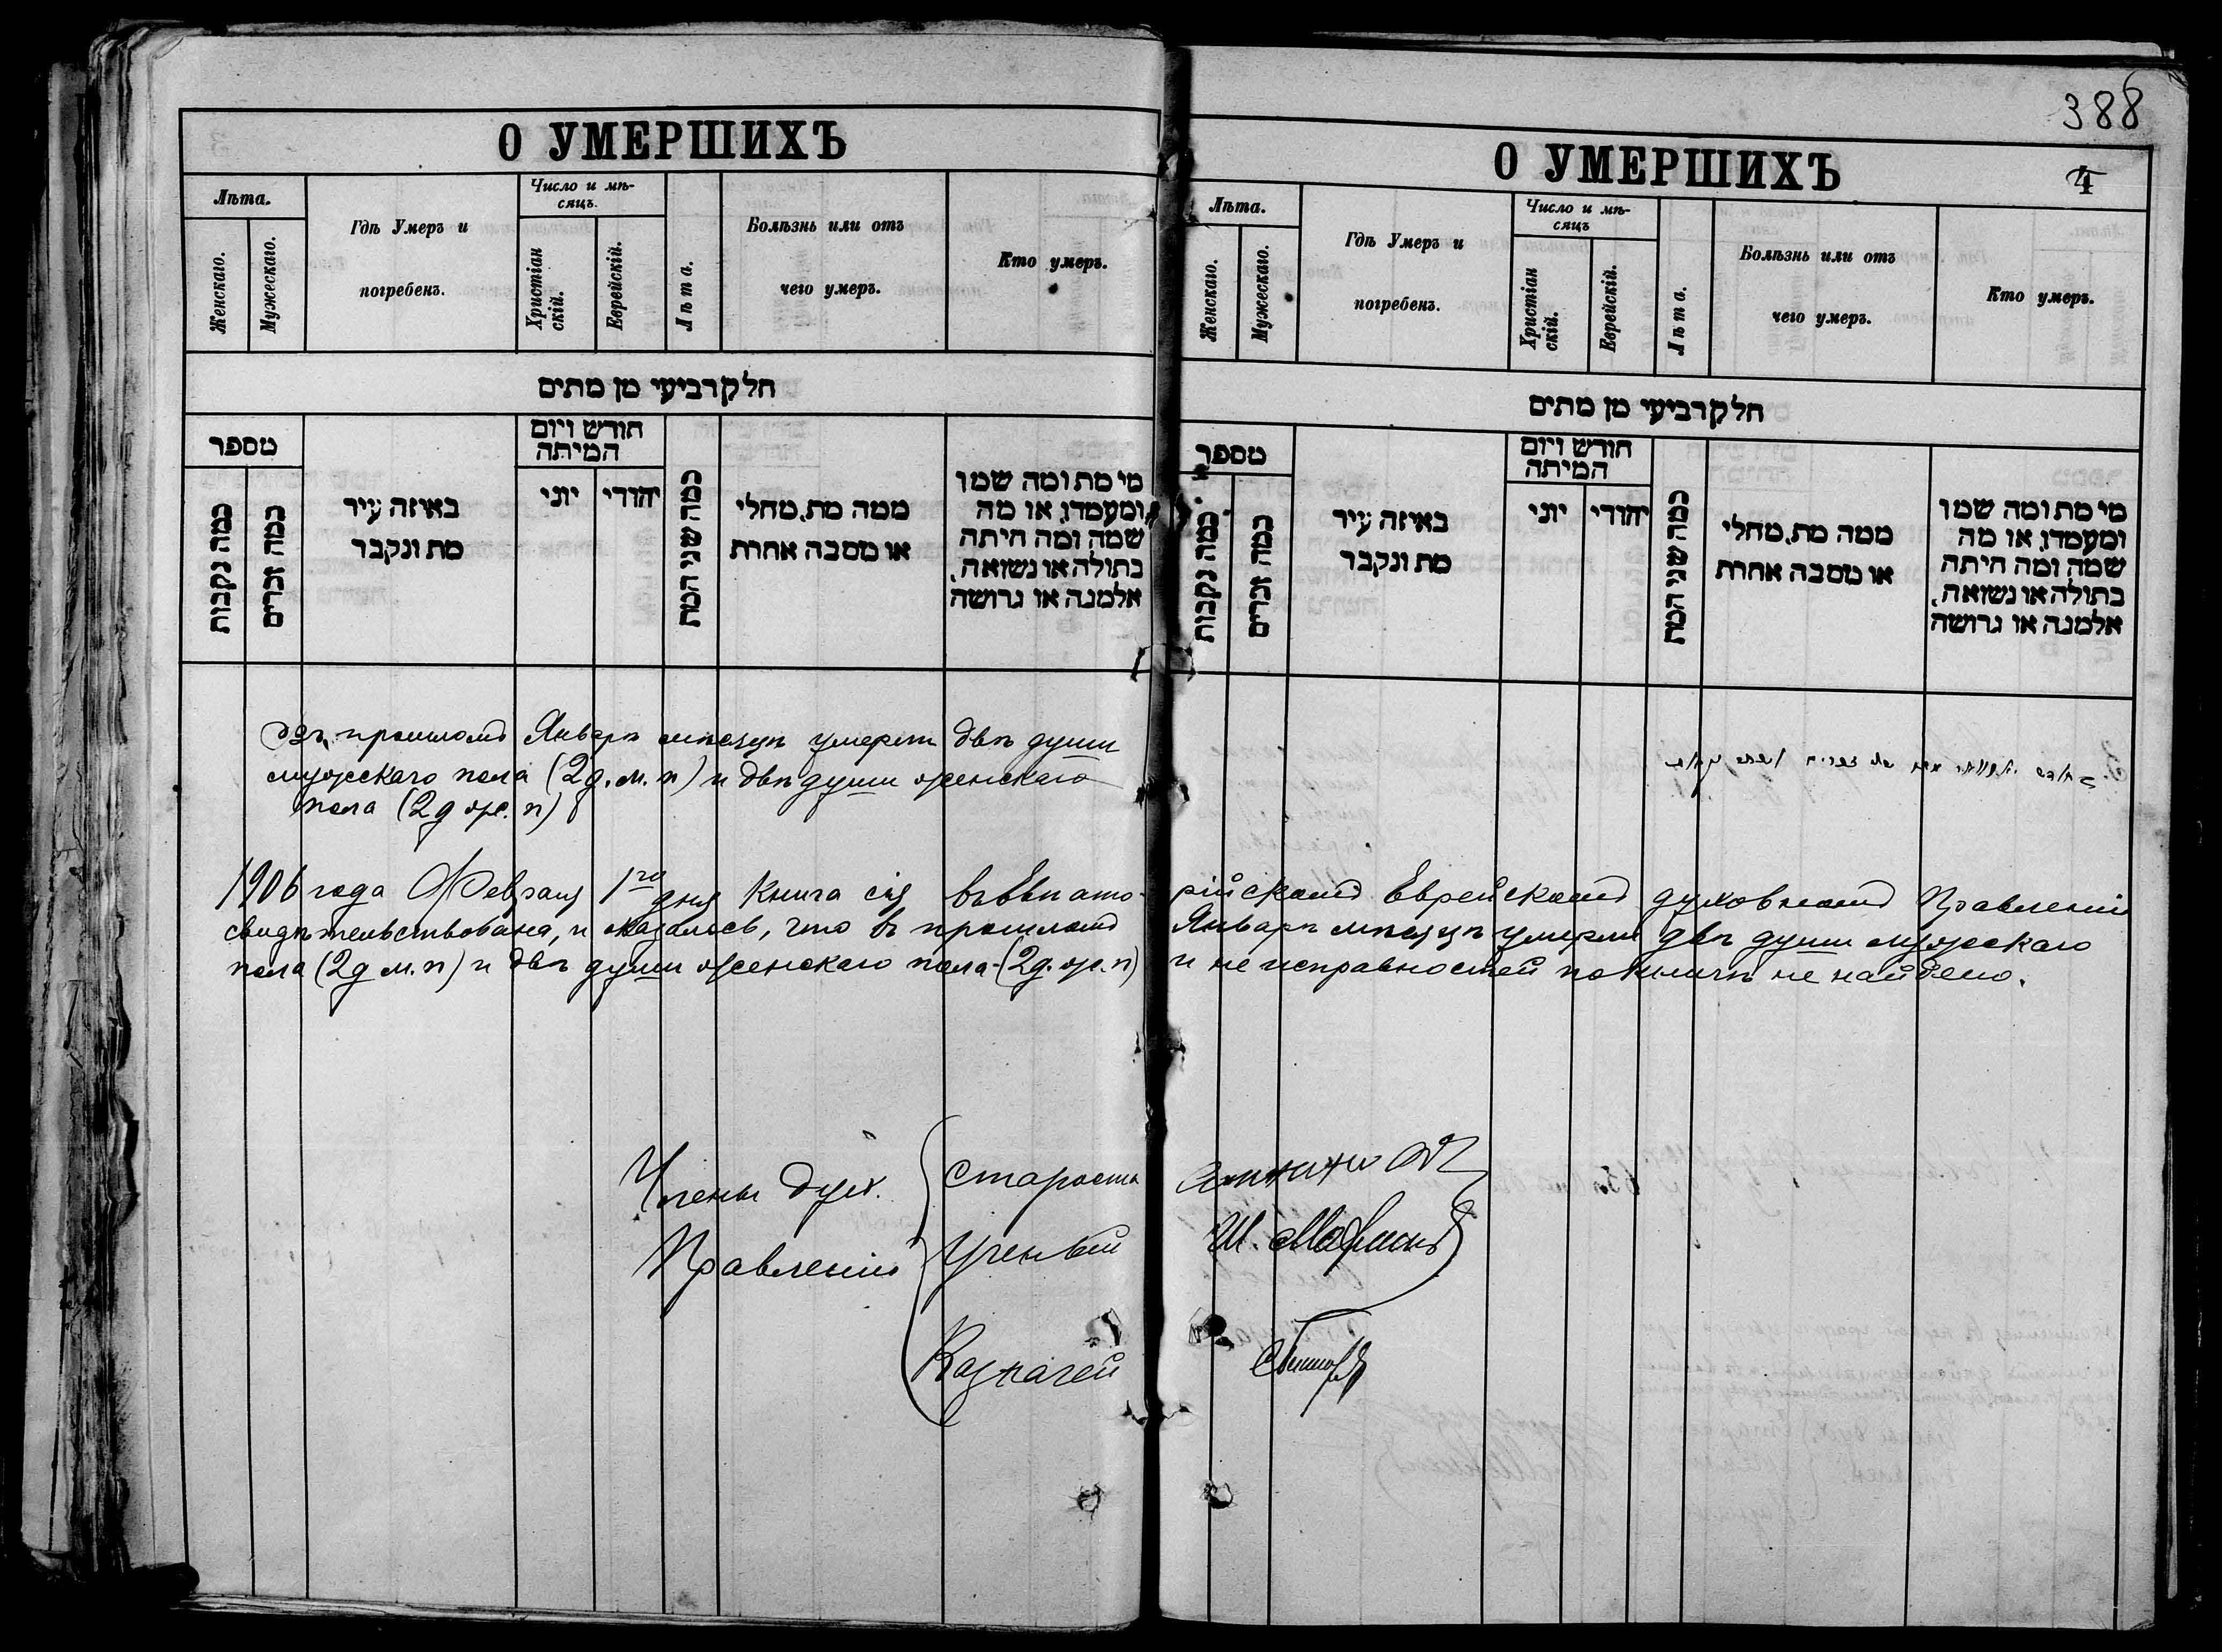 388
О УМЕРШИХЪ
Лѣта.
Женскаго.
Мужескаго.
Гдѣ Умеръ и
погребенъ.
Число и мѣ-
сяцъ.
Христіан
скій.
Еврейскій.
Лѣта.
Болѣзнь или отъ
чего умеръ.
Кто умеръ.
חלק רביעי מן מתים
מספר
כמה נקבות
כמה זכרים
באיזה עיר
מת ונקבר
חודש ויום
המיתה
יוני
יהודי
כמה שני המת
ממה מת, מחלי
או מסבה אחרת
מי מת ומה שמו
ומעמדו, או מה
שמה ומה היתה
בתולה או נשואה,
אלמנה או גרושה
прошломъ Январѣ мѣсяцѣ умерли двѣ души
мужескаго пола (2 д. м. п) и двѣ души женскаго
пола (2 д ж. п)
О УМЕРШИХЪ
4
Лѣта.
Женскаго.
Мужескаго.
Гдѣ Умеръ и
погребенъ.
Число и мѣ-
сяцъ
Христіан
скій.
Еврейскій.
Лѣта.
Болѣзнь или отъ
чего умеръ.
Кто умеръ.
חלק רביעי מן מתים
מספר
כמה נקבות
כמה זכרים
באיזה עיר
מת ונקבר
חודש ויום
המיתה
יוני
יהודי
כמה שני המת
ממה מת, מחלי
או מסבה אחרת
מי מת ומה שמו
ומעמדו, או מה
שמה ומה היתה
בתולה או נשואה,
אלמנה או גרושה
1906 года Февраля 1го дня Книга сія въ Евпато-рійскомъ Еврейскомъ духовномъ Правленіи
свидѣтельствована, и оказалось, что въ прошломъ Январѣ мѣсяцѣ умерли двѣ души мужескаго
пола (2 д м. п) и двѣ души женскаго пола (2 д. ж. п) и не исправностей по книгѣ не найдено.
Члены Дух. Староста
Правленія Ученый Ш.
Казначей